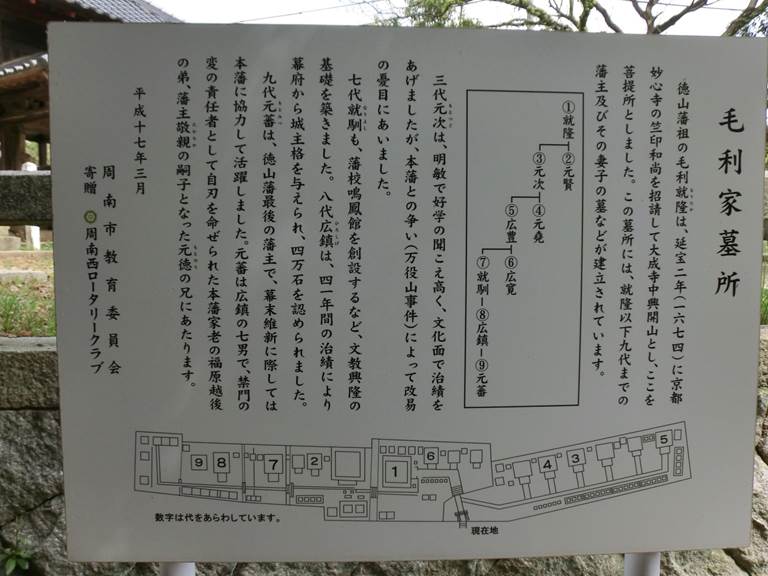 毛利家墓所
徳山藩祖の毛利就隆は、延宝二年(一六七四)に京都
妙心寺の竺印和尚を招請して大成寺中興開山とし、ここを
菩提所としました。この墓所には、就隆以下九代までの
藩主及びその妻子の墓などが建立されています。
①就隆
②元賢
③元次
④元堯
⑤広豊
⑥広寛
⑦就馴ー⑧広鎮ー⑨元蕃
三代元次は、明敏で好学の聞こえ高く、文化面で治績を
あげましたが、本藩との争い(万役山事件)によって改易
の憂目にあいました。
七代就馴も、藩校鳴鳳館を創設するなど、文教興隆の
基礎を築きました。八代広鎮は、四一年間の治績により
幕府から城主格を与えられ、四万石を認められました。
九代元蕃は、徳山藩最後の藩主で、幕末維新に際しては
本藩に協力して活躍しました。元蕃は広鎮の七男で、禁門の
変の責任者として自刃を命ぜられた本藩家老の福原越後
の弟、藩主敬親の嗣子となった元徳の兄にあたります。
平成十七年三月
周南市教育委員会
寄贈 周南西ロータリークラブ
9 8 7 2 1 6 4 3 5
数字は代をあらわしています。
現在地